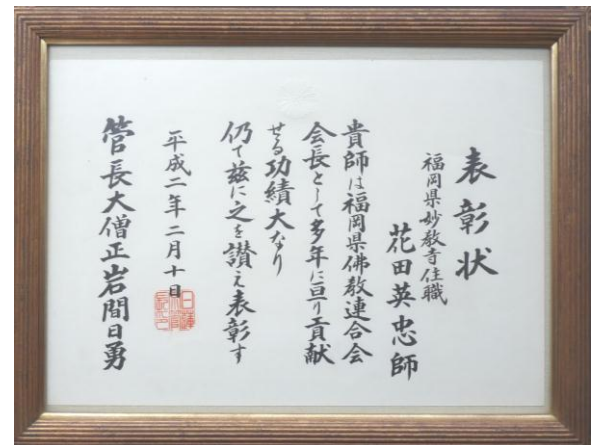 表彰状
福岡県妙教寺住職
花田英忠師
貴師は福岡県佛教連合会
会長として多年に亘り貢献
せる功績大なり
仍て茲に之を讃え表彰す
平成二年二月十日
管長大僧正岩間日勇